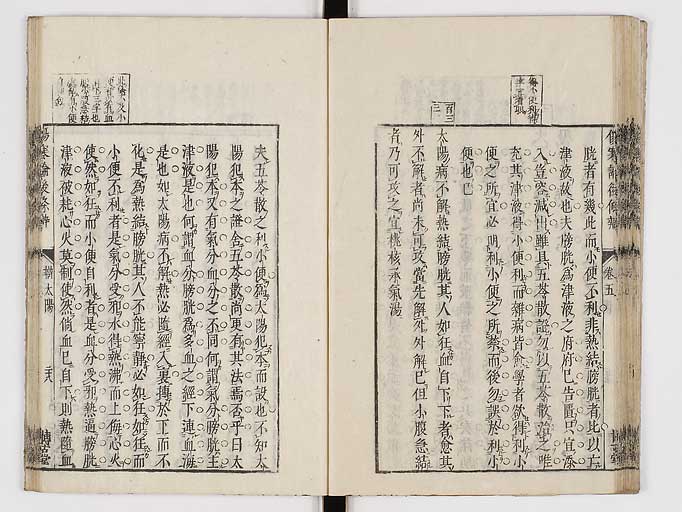 胱者有幾此而小便不利非熱結膀胱者比以亡
津液故也夫膀胱為津液之府府已告匱只宜添
入豈容減出雖具五苓散證勿以五苓散治之唯
充其津液得小便利而雜病皆愈學者欲得利小
便之所宜必明利小便之所禁而後勿誤於利小
便也已
百三
三
太陽病不解熱結膀胱其人如狂血自下下者愈其
外不解者尚未可攻當先解外外解已但小腹急結
者乃可攻之宜桃核承氣湯
卷五
夫五苓散之利小便為太陽犯本而設也不知太
陽犯本之證舍五苓散尚更有其法焉否乎曰太
陽犯本又有氣分血分之不同何謂氣分膀胱主
津液是也何謂血分膀胱為多血之經下連血海
是也如太陽病不解熱必隨經入裏摶於下而不
化是為熱結膀胱其人不能寧靜必如狂如狂而
小便不利者是氣分受邪水得熱沸而上侮心火
使然如狂而小便自利者是血分受邪熱逼膀胱
津液被耗心火莫制使然倘血已自下則熱隨血
辨太陽
二八